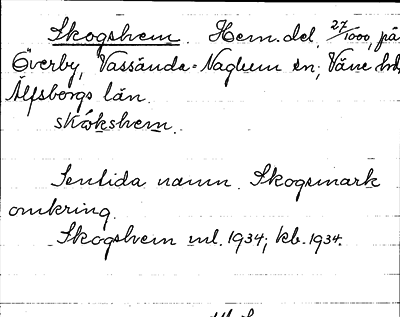 Skogshem. Hem.del, 27/1000, på
Överby, Vassända-Naglum sn; Väne hd,
Älfsborgs län.
skókshem.
Sentida namn. Skogsmark
omkring.
Skogshem ml. 1934; kb. 1934.